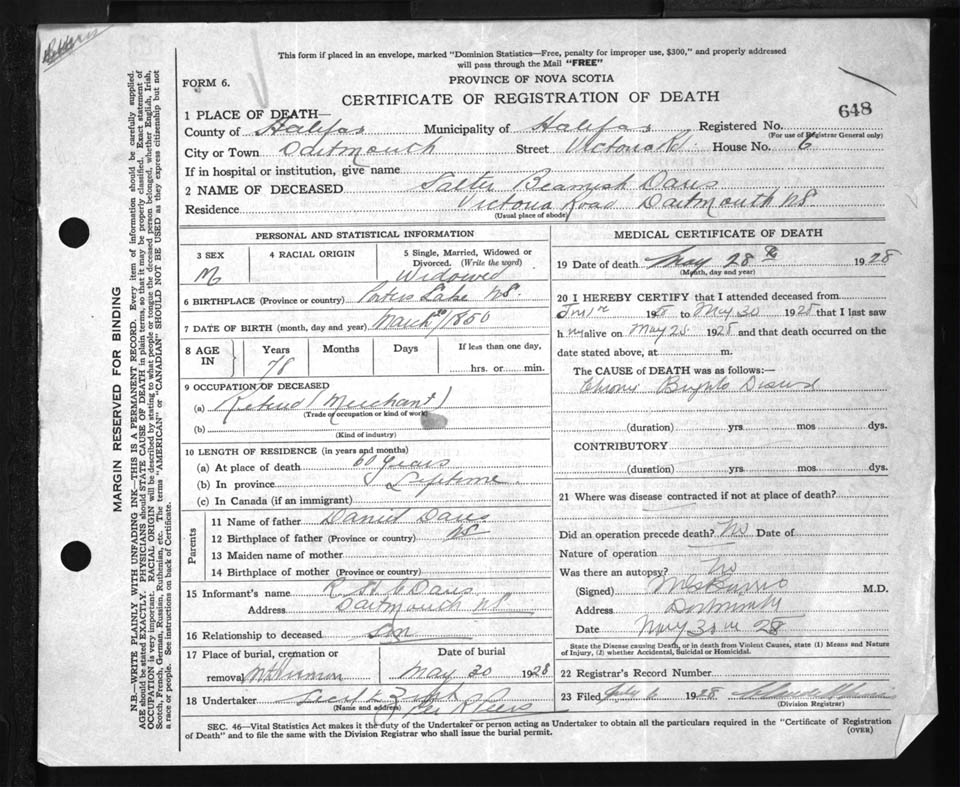 This form if placed in an envelope, marked "Dominion Statistics—Free, penalty for improper use, $300," and properly addressed
will pass through the Mail "FREE"
FORM 6.
PROVINCE OF NOVA SCOTIA
CERTIFICATE OF REGISTRATION OF DEATH
648
1 PLACE OF DEATH—
County of Halifax Municipality of Halifax Registered No.
(For use of Registrar General only)
City or Town Street Victoria Rd. House No. 6
If in hospital or institution, give name
2 NAME OF DECEASED Salter Beamish Davis
Residence Victoria Road Dartmouth NS
(Usual place of abode)
PERSONAL AND STATISTICAL INFORMATION
3 SEX 4 RACIAL ORIGIN 5 Single, Married, Widowed or Divorced. (Write the word)
M Widowed
6 BIRTHPLACE (Province or country) Porters Lake NS.
7 DATE OF BIRTH (month, day and year) March 1850
8 AGE IN Years Months Days If less than one day,
78 hrs. or min.
9 OCCUPATION OF DECEASED
(a) Retired (Merchant)
(Trade or occupation or kind of work)
(b)
(Kind of industry)
10 LENGTH OF RESIDENCE (in years and months)
(a) At place of death 60 years
(b) In province Lifetime
(c) In Canada (if an immigrant)
Parents
11 Name of father Daniel Davis
12 Birthplace of father (Province or country) NS
13 Maiden name of mother
14 Birthplace of mother (Province or Country)
15 Informant's name Davis
Address Dartmouth NS
16 Relationship to deceased Son
17 Place of burial, cremation or removal Mt Hermon Date of burial May 30 1928
18 Undertaker
(Name and address)
MEDICAL CERTIFICATE OF DEATH
19 Date of death May 28th 1928
(Month, day and year)
20 I HEREBY CERTIFY that I attended deceased from
192 to May 30 1928 that I last saw
h m alive on May 25 1928 and that death occurred on the
date stated above, at m.
The CAUSE of DEATH was as follows:—
Chronic Brights Disease
(duration) yrs mos dys.
CONTRIBUTORY
(duration) yrs mos dys.
21 Where was disease contracted if not at place of death?
Did an operation precede death? No Date of
Nature of operation
Was there an autopsy? No
(Signed) M.D.
Address Dartmouth
Date May 30 28
State the Disease causing Death, or in death from Violent Causes, state (1) Means and Nature
of Injury, (2) whether Accidental, Suicidal or Homicidal.
22 Registrar's Record Number
23 Filed July 6 1928
(Division Registrar)
SEC. 46—Vital Statistics Act makes it the duty of the Undertaker or person acting as Undertaker to obtain all the particulars required in the "Certificate of Registration
of Death" and to file the same with the Division Registrar who shall issue the burial permit.
(OVER)
MARGIN RESERVED FOR BINDING
N.B.—WRITE PLAINLY WITH UNFADING INK—THIS IS A PERMANENT RECORD. Every item of information should be carefully supplied.
AGE should be stated EXACTLY. PHYSICIANS should STATE CAUSE OF DEATH in plain terms, so that it may be properly classified. Exact statement of
OCCUPATION is very important. RACIAL ORIGIN will be described by stating to what people or tongue the deceased person belonged, whether English, Irish,
Scotch, French, German, Russian, Ruthenian, etc. The terms "AMERICAN" or "CANADIAN" SHOULD NOT BE USED as they express citizenship but not
a race or people. See instructions on back of Certificate.